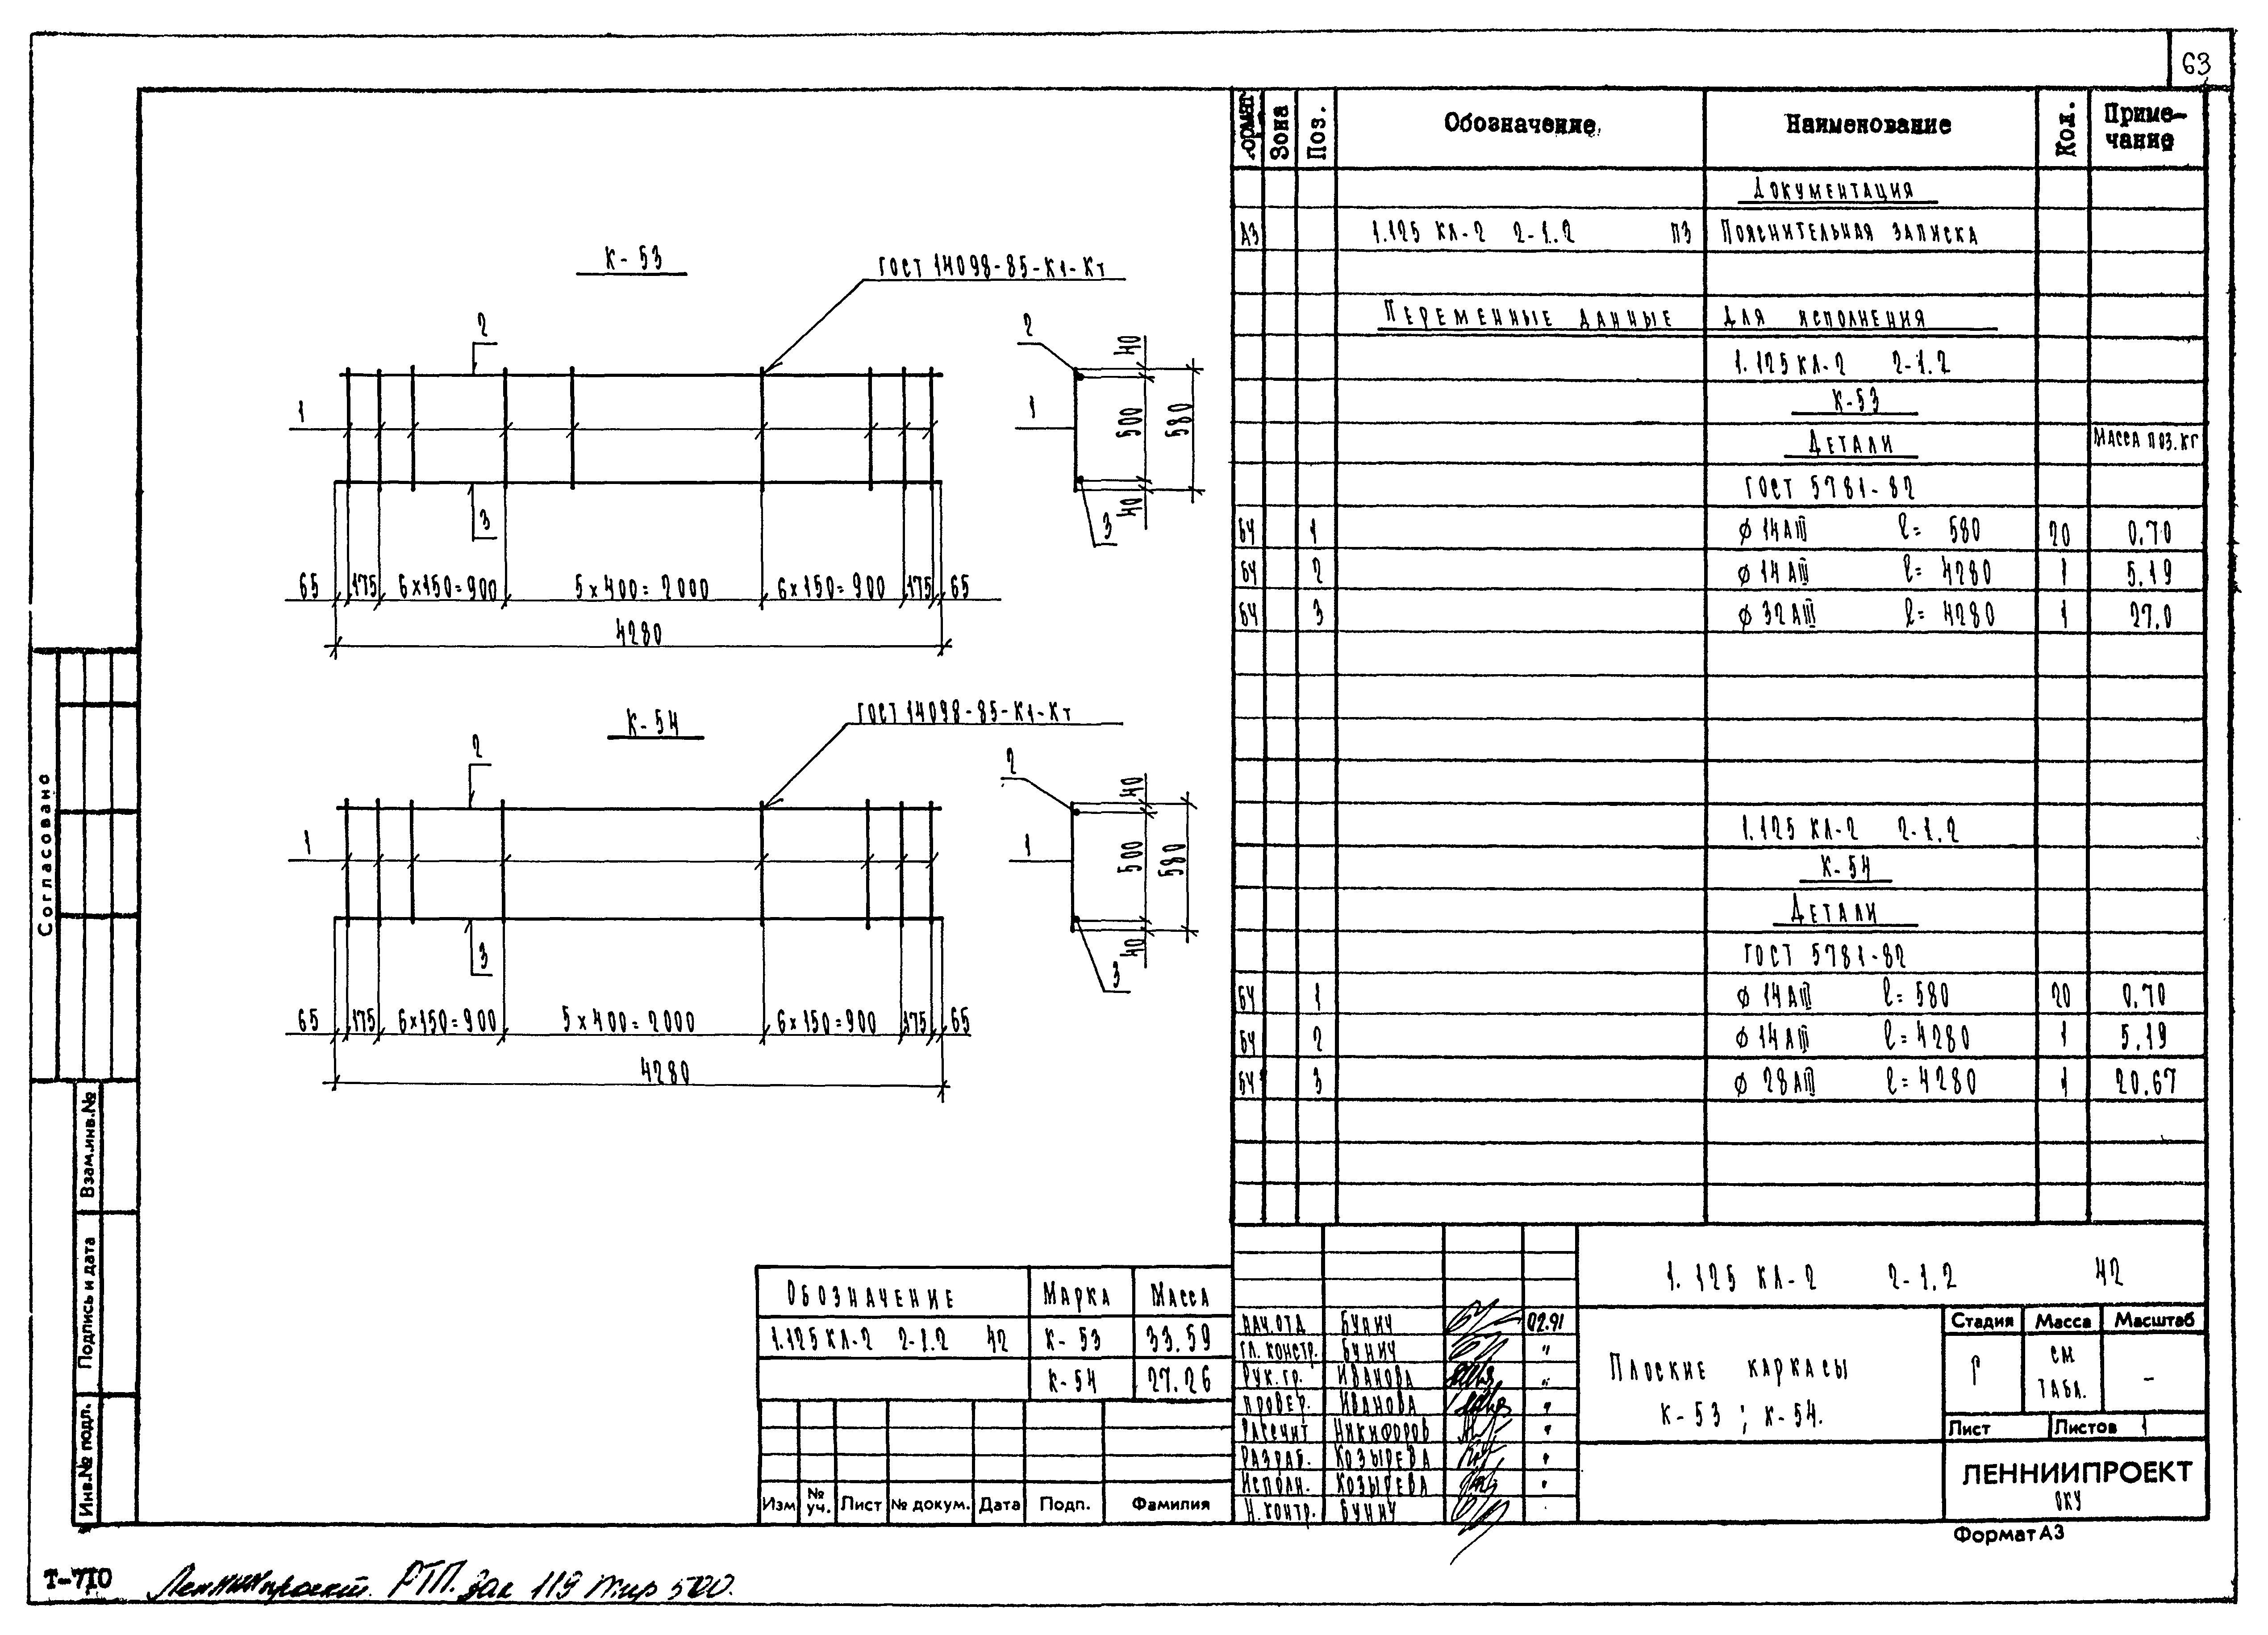 63
К-53
ГОСТ 14098-85-К1-Кт
2
1
3
65 175 6×150=900 5×400=2000 6×150=900 175 65
4280
2
1
3
40
500
40
580
К-54
ГОСТ 14098-85-К1-Кт
2
1
3
65 175 6×150=900 5×400=2000 6×150=900 175 65
4280
2
1
3
40
500
40
580
Формат Зона Поз. Обозначение Наименование Кол. Приме-
чание
Документация
А3 1.125 КЛ-2 2-1.2 ПЗ Пояснительная записка
Переменные данные для исполнения
1.125 КЛ-2 2-1.2
К-53
Детали Масса поз.кг
ГОСТ 5781-82
БЧ 1 ∅ 14АIII ℓ= 580 20 0.70
БЧ 2 ∅ 14АIII ℓ= 4280 1 5.19
БЧ 3 ∅ 32АIII ℓ= 4280 1 27.0
1.125 КЛ-2 2-1.2
К-54
Детали
ГОСТ 5781-82
БЧ 1 ∅ 14АIII ℓ= 580 20 0.70
БЧ 2 ∅ 14АIII ℓ= 4280 1 5.19
БЧ 3 ∅ 28АIII ℓ= 4280 1 20.67
Обозначение Марка Масса
1.125 КЛ-2 2-1.2 42 К-53 33.59
К-54 27.26
Изм № уч. Лист № докум. Дата Подп. Фамилия
Нач.отд Бунич 02.91
Гл. констр. Бунич "
Рук.гр. Иванова "
Провер. Иванова "
Расечит Никифоров "
Разраб. Козырева "
Исполн. Козырева "
Н.контр. Бунич
1.125 КЛ-2 2-1.2 42
Плоские каркасы
К-53; К-54.
Стадия Масса Масштаб
Р см
табл. -
Лист Листов 1
ЛЕННИИПРОЕКТ
ОКУ
Формат А3
Согласовано
Взам.инв.№
Подпись и дата
Инв.№ подл.
Т-710 Леннипроект. РТП. Зак 119 тир 500.